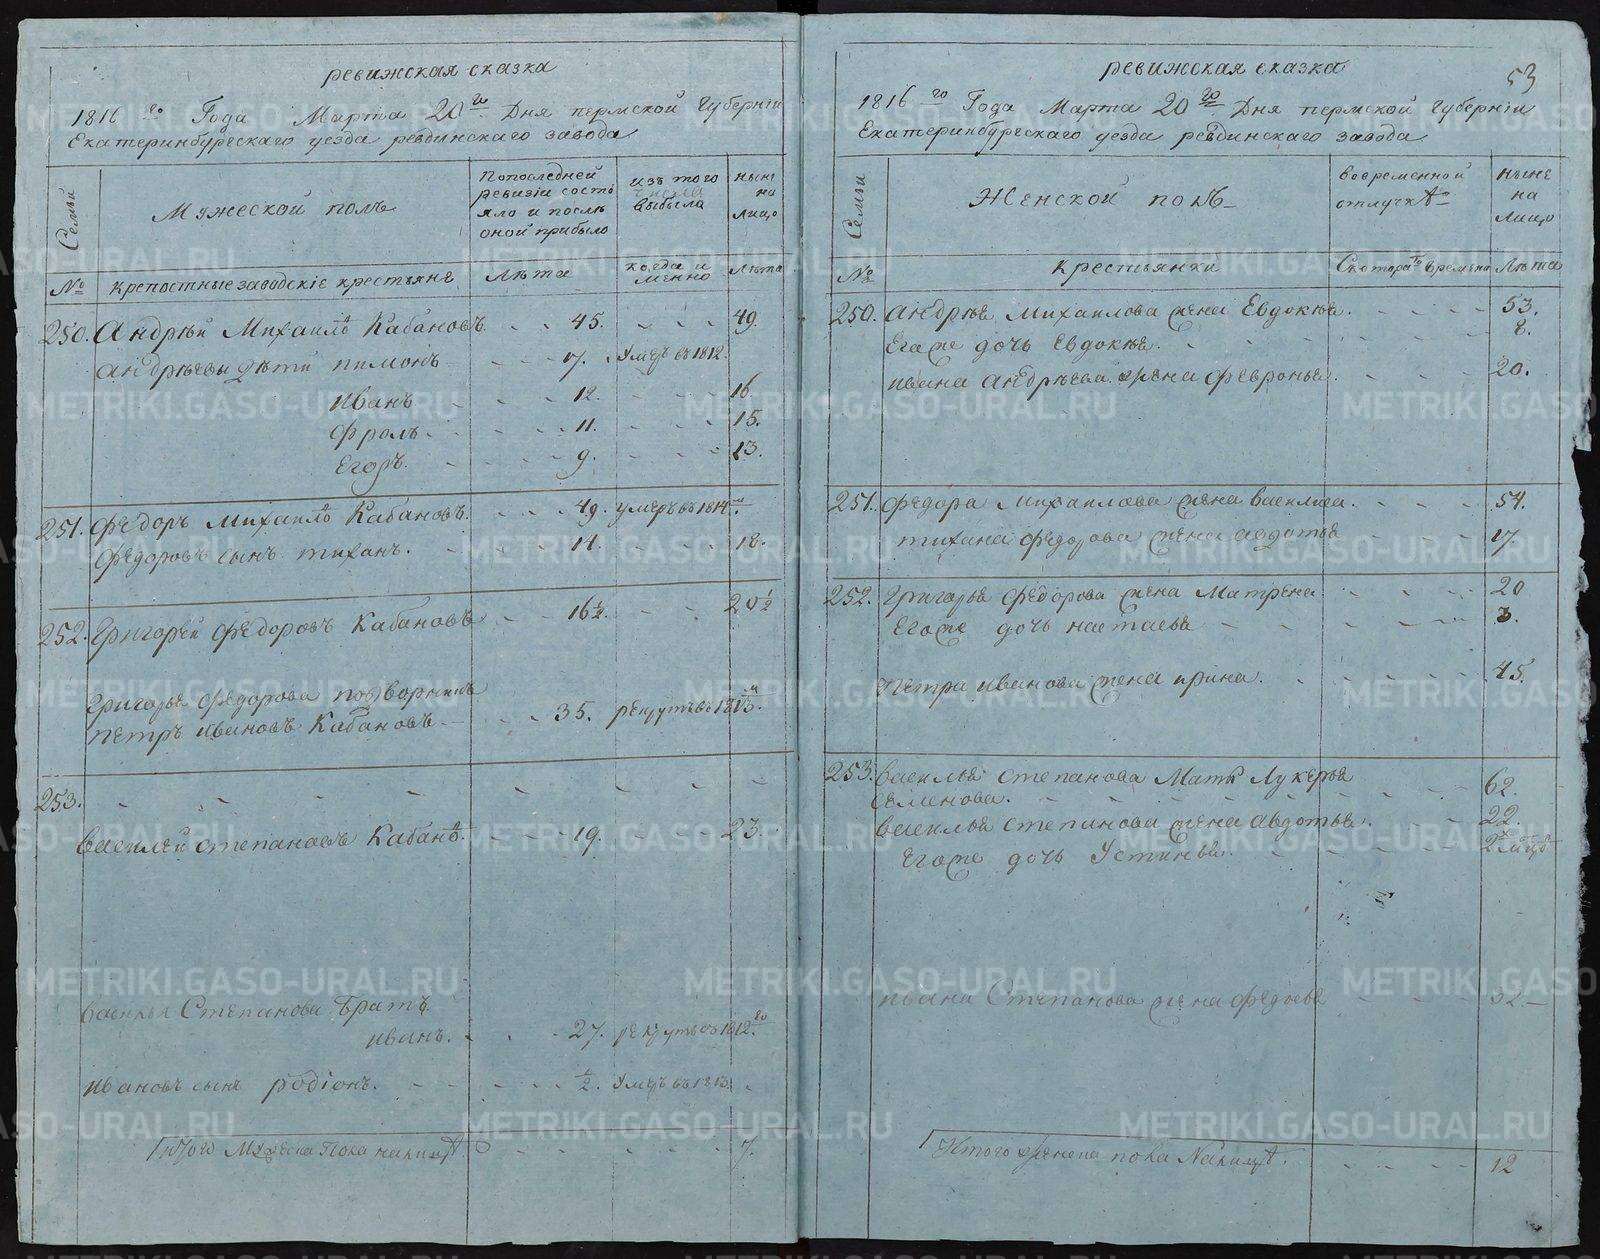 ревижская сказка
1816 го Года Марта 20 го Дня пермской Губернiи
Екатеринбургскаго уезда ревдинскаго завода
Семьи
Мужеской полъ
Попоследней ревизiи состо яло и послѣ оной прибыло
изъ того числа выбыло
ныне на лицо
№
крепостные заводскiе крестьяне
Лѣта
когда и менно
лѣта
250. Андрѣй Михаилѣ Кабановъ 45. 49.
андрѣевы дѣти пимонъ 17. Умеръ въ 1812.
Иванъ 12. 16.
Фролъ 11. 15.
Егоръ 9. 13.
251. Федоръ Михаилѣ Кабановъ. 49. умеръ въ 1814
Федоровъ сынъ тиханъ. 14. 18.
252. Григорей Федоровъ Кабановъ 16 1/2. 20 1/2
Григорья Федорова подворникъ
петръ ивановъ Кабановъ 35. рекрутъ въ 1813.
253.
василей степановъ Кабанѣ. 19. 23.
василья Степанова братъ
иванъ. 27. рекрутъ въ 1812. го
ивановъ сынъ родiонъ. 1/2. Умеръ въ 1813.
Итого Мужеска пола налицо 7.
53
ревижская сказка
1816 го Года Марта 20 го Дня пермской Губернiи
Екатеринбургскаго уезда ревдинскаго завода
Семьи
Женской полъ
вовременной отлучкѣ
ныне на лицо
№
крестьянки
Скотораго времени
Лѣта
250. андрѣя михаилова жена Евдокѣя. 53.
Егоже дочь Евдокѣя. 8.
ивана андрѣева жена февронья. 20.
251. Федора михаилова жена василиса. 54.
тихана федорова жена авдотья 17.
252. Григорья федорова жена Матрена 20
Егоже дочь настасья 3.
Петра иванова жена ирина. 45.
253. василья степанова Мать Лукерья
семенова. 62.
василья степанова жена авдотья. 22.
Егоже дочь Устинья. 2х мцъ
ивана Степанова жена федосья 32
Итого женска пола Налицо. 12
METRIKI.GASO-URAL.RU